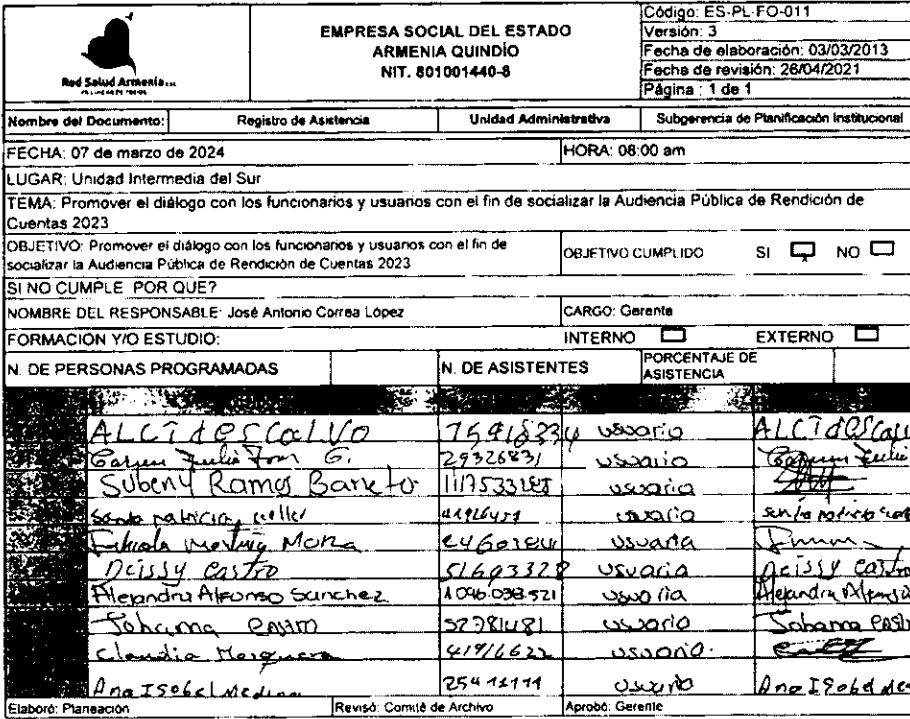 EMPRESA SOCIAL DEL ESTADO
ARMENIA QUINDÍO
NIT. 801001440-8
Código: ES-PL-FO-011
Versión: 3
Fecha de elaboración: 03/03/2013
Fecha de revisión: 26/04/2021
Página : 1 de 1
Red Salud Armenia E.S.E.
Nombre del Documento: Registro de Asistencia Unidad Administrativa Subgerencia de Planificación Institucional
FECHA: 07 de marzo de 2024 HORA: 08:00 am
LUGAR: Unidad Intermedia del Sur
TEMA: Promover el diálogo con los funcionarios y usuarios con el fin de socializar la Audiencia Pública de Rendición de
Cuentas 2023
OBJETIVO: Promover el diálogo con los funcionarios y usuarios con el fin de
socializar la Audiencia Pública de Rendición de Cuentas 2023
OBJETIVO CUMPLIDO SI x NO
SI NO CUMPLE POR QUE?
NOMBRE DEL RESPONSABLE: José Antonio Correa López CARGO: Gerente
FORMACION Y/O ESTUDIO: INTERNO EXTERNO
N. DE PERSONAS PROGRAMADAS N. DE ASISTENTES PORCENTAJE DE
ASISTENCIA
ALCIdes CalVO usuario ALCIdes
Carmen Julia G. 29326831 usuario Carmen Julia
Subeny Ramos Barreto usuario
patricia usuaria
Mona usuaria
Deissy Castro 51693328 usuaria Deissy Castro
Alejandra Alfonso Sanchez 1096.038.521 usuaria Alejandra
Johanna Castro 52781481 usuario Johanna
Claudia Mosquera 41916622 usuario.
Ana ISabel Medina usuario Ana ISabel
Elaboró: Planeación Revisó: Comité de Archivo Aprobó: Gerente